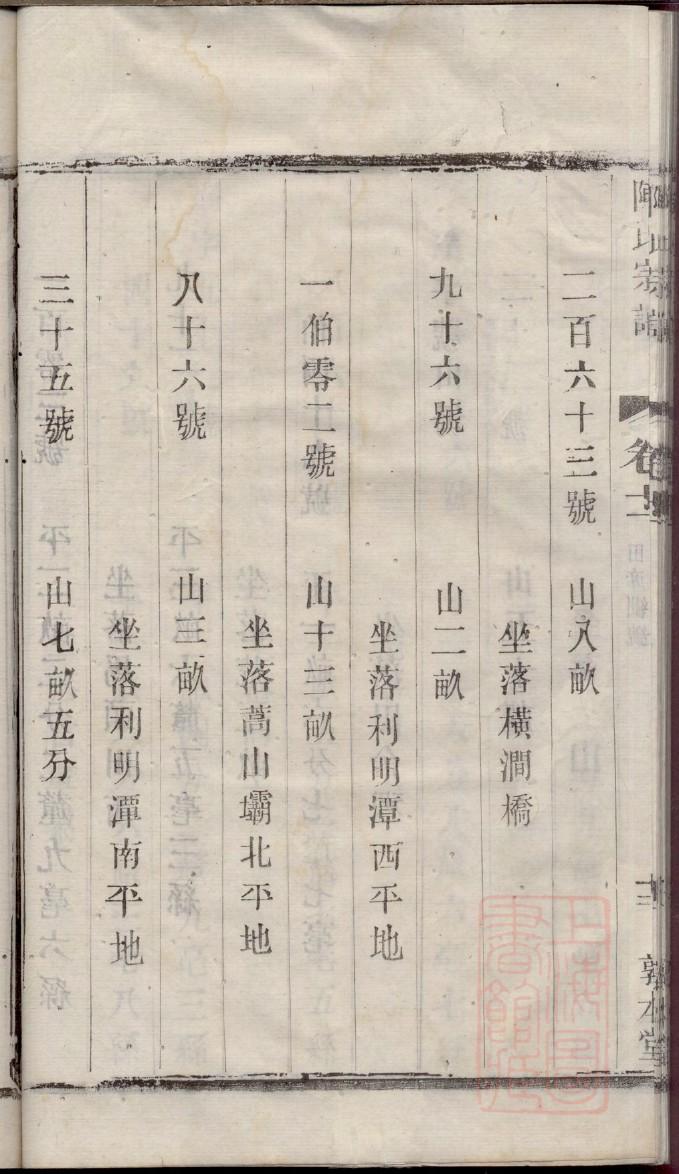 宗譜
卷十二
敦本堂
二百六十三號 山八畝
坐落橫澗橋
九十六號 山二畝
坐落利明潭西平地
一伯零二號 山十三畝
坐落蒿山壩北平地
八十六號 山三畝
坐落利明潭南平地
三十五號 山七畝五分